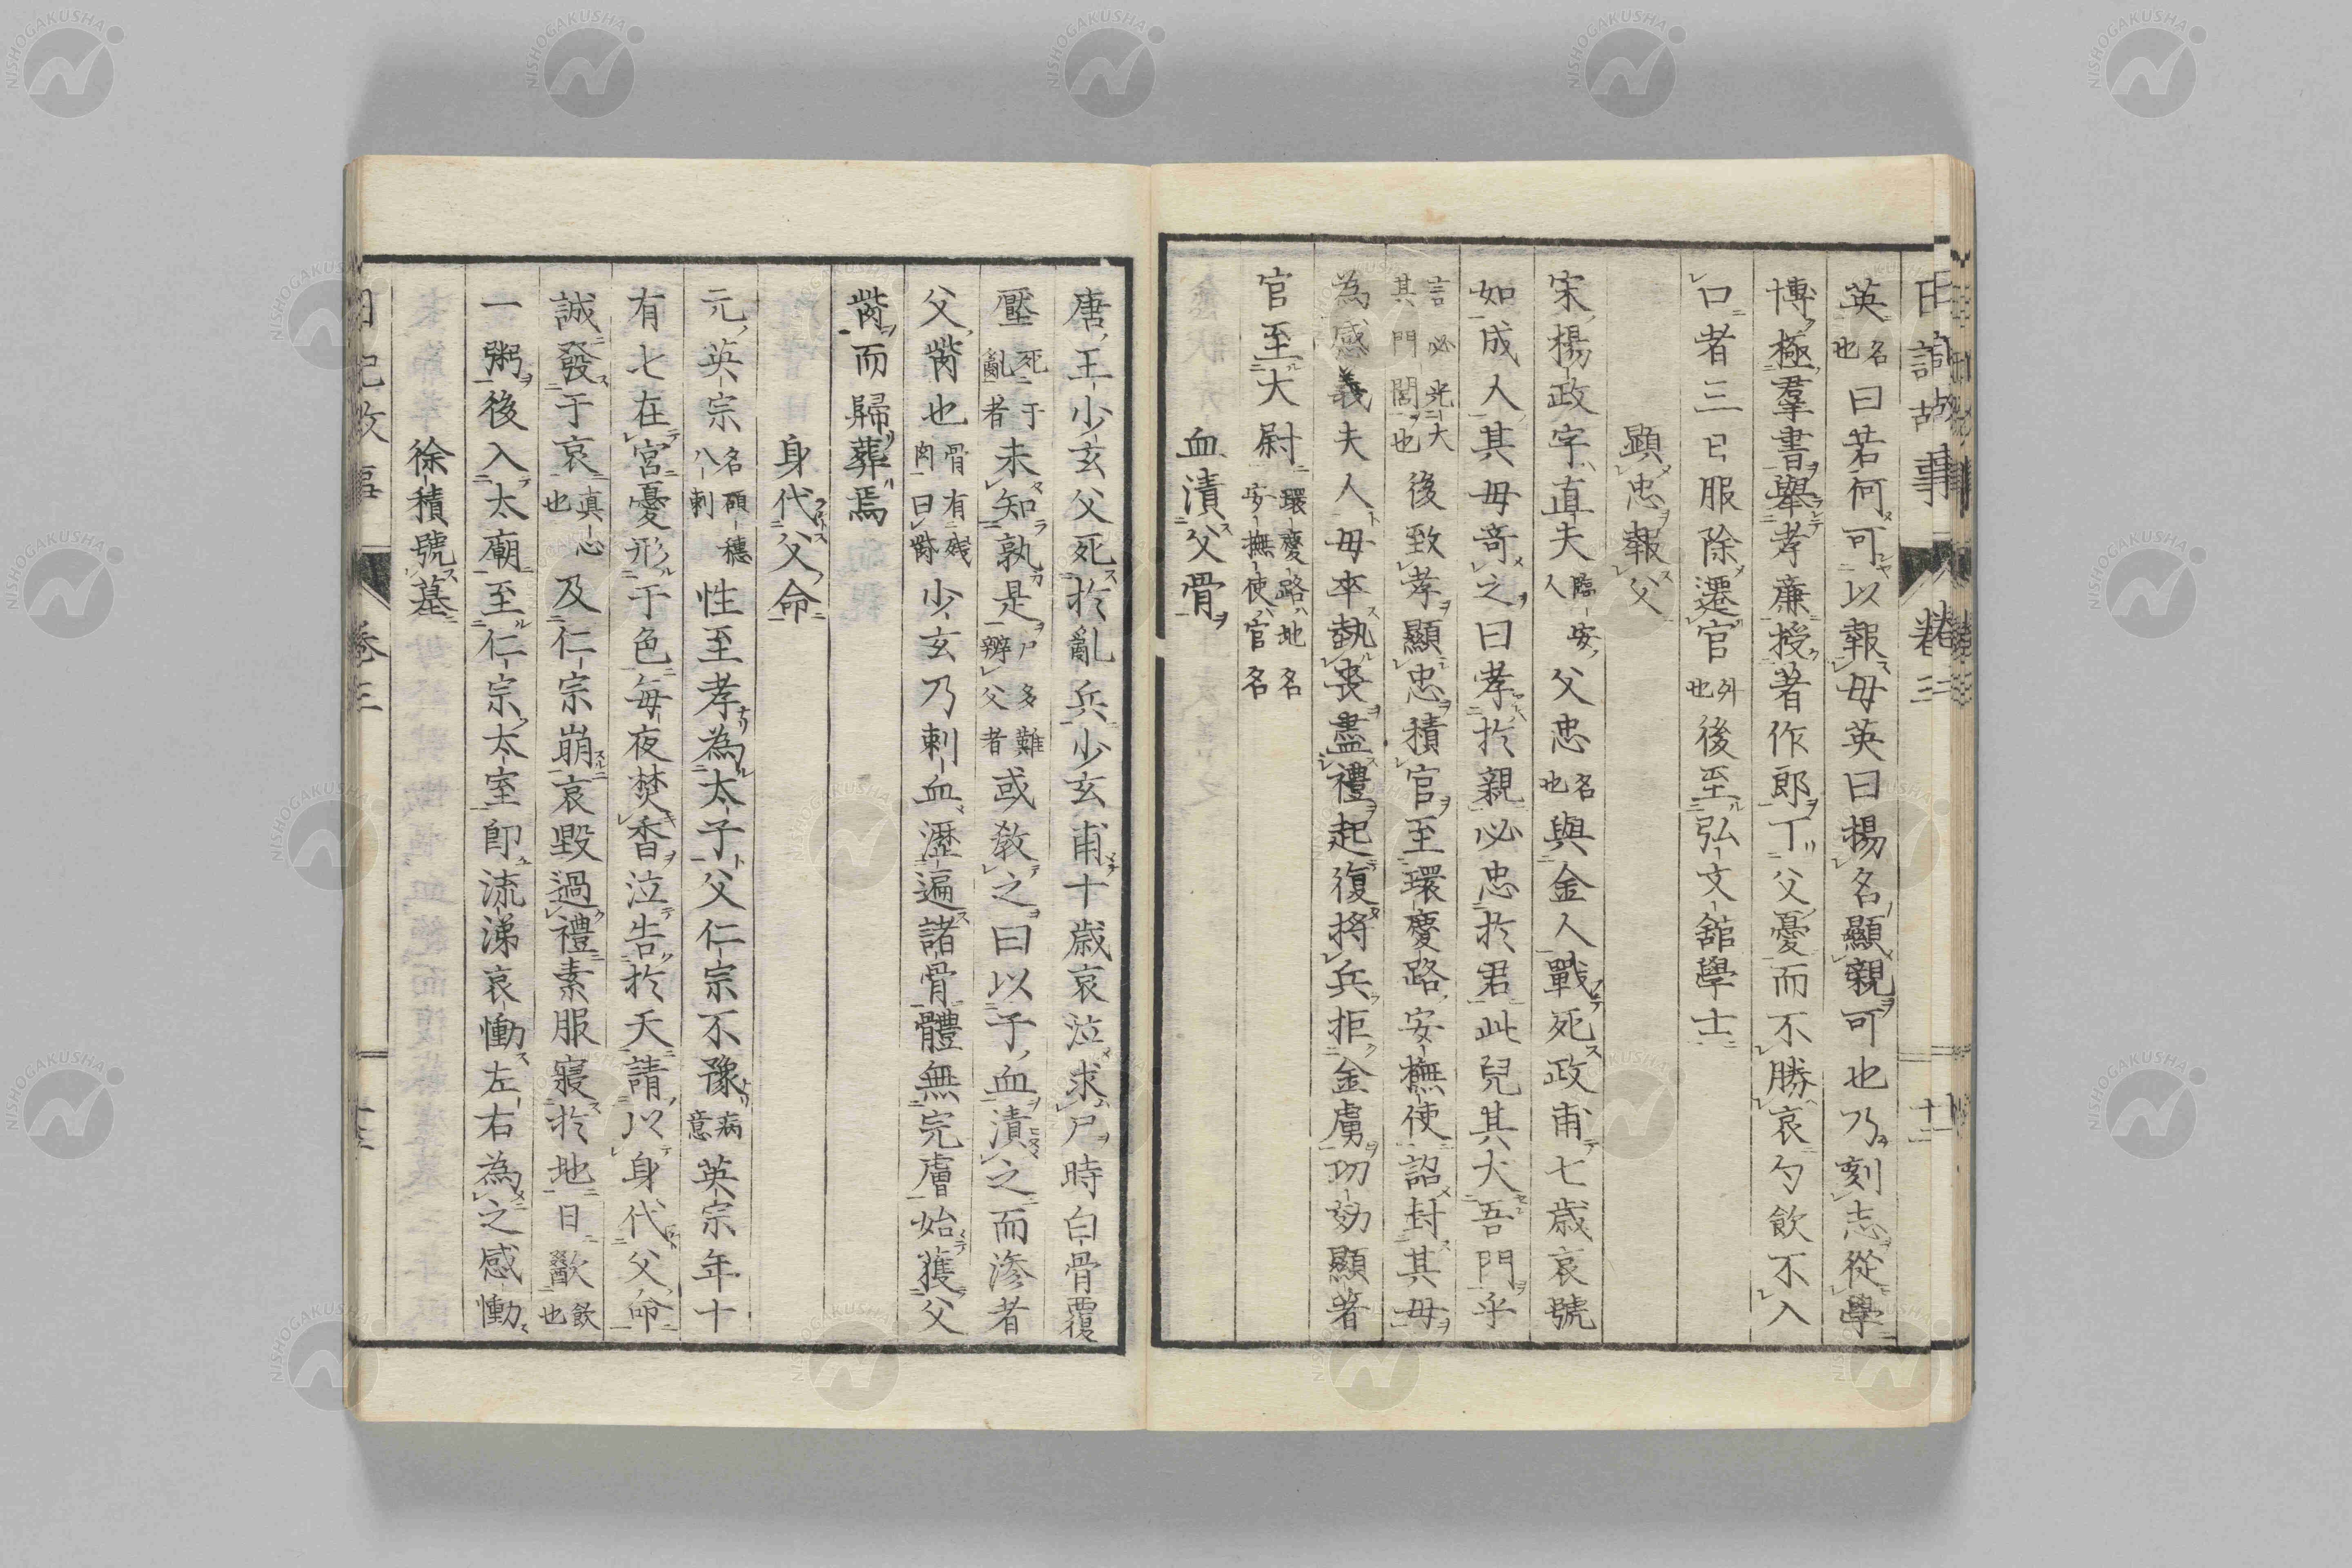 日記故事 卷三 十二
英名也曰若何可以報母英曰揚名顯親可也乃刻志從學
博極羣書舉孝廉授著作郎丁父憂而不勝哀勺飲不入
口者三日服除遷官外也後至弘文舘學士
顯忠報父
宋楊政字直夫臨安人父忠名也與金人戰死政甫七歳哀號
如成人其母竒之曰孝於親必忠於君此兒其大吾門乎
言必光大其門閭也後致孝顯忠積官至環慶路安撫使詔封其母
為感義夫人母卒執喪盡禮起復将兵拒金虜功効顯著
官至大尉環慶路地名安撫使官名
血漬父骨
唐王少玄父死於亂兵少玄甫十歳哀泣求尸時白骨覆
壓死于亂者未知孰是尸多難辨父者或教之曰以子血漬之而渗者
父胔也骨有残肉曰胔少玄乃刺血瀝遍諸骨體無完膚始獲父
胔而歸葬焉
身代父命
元英宗名碩穗八剌性至孝為太子父仁宗不豫病意英宗年十
有七在宮憂形于色每夜焚香泣告於天請以身代父命
誠發于哀真心也及仁宗崩哀毀過禮素服寢於地日歠飲也
一粥後入太廟至仁宗太室即流涕哀慟左右為之感慟
徐積號墓
日記故事 卷三
NISHOGAKUSHA